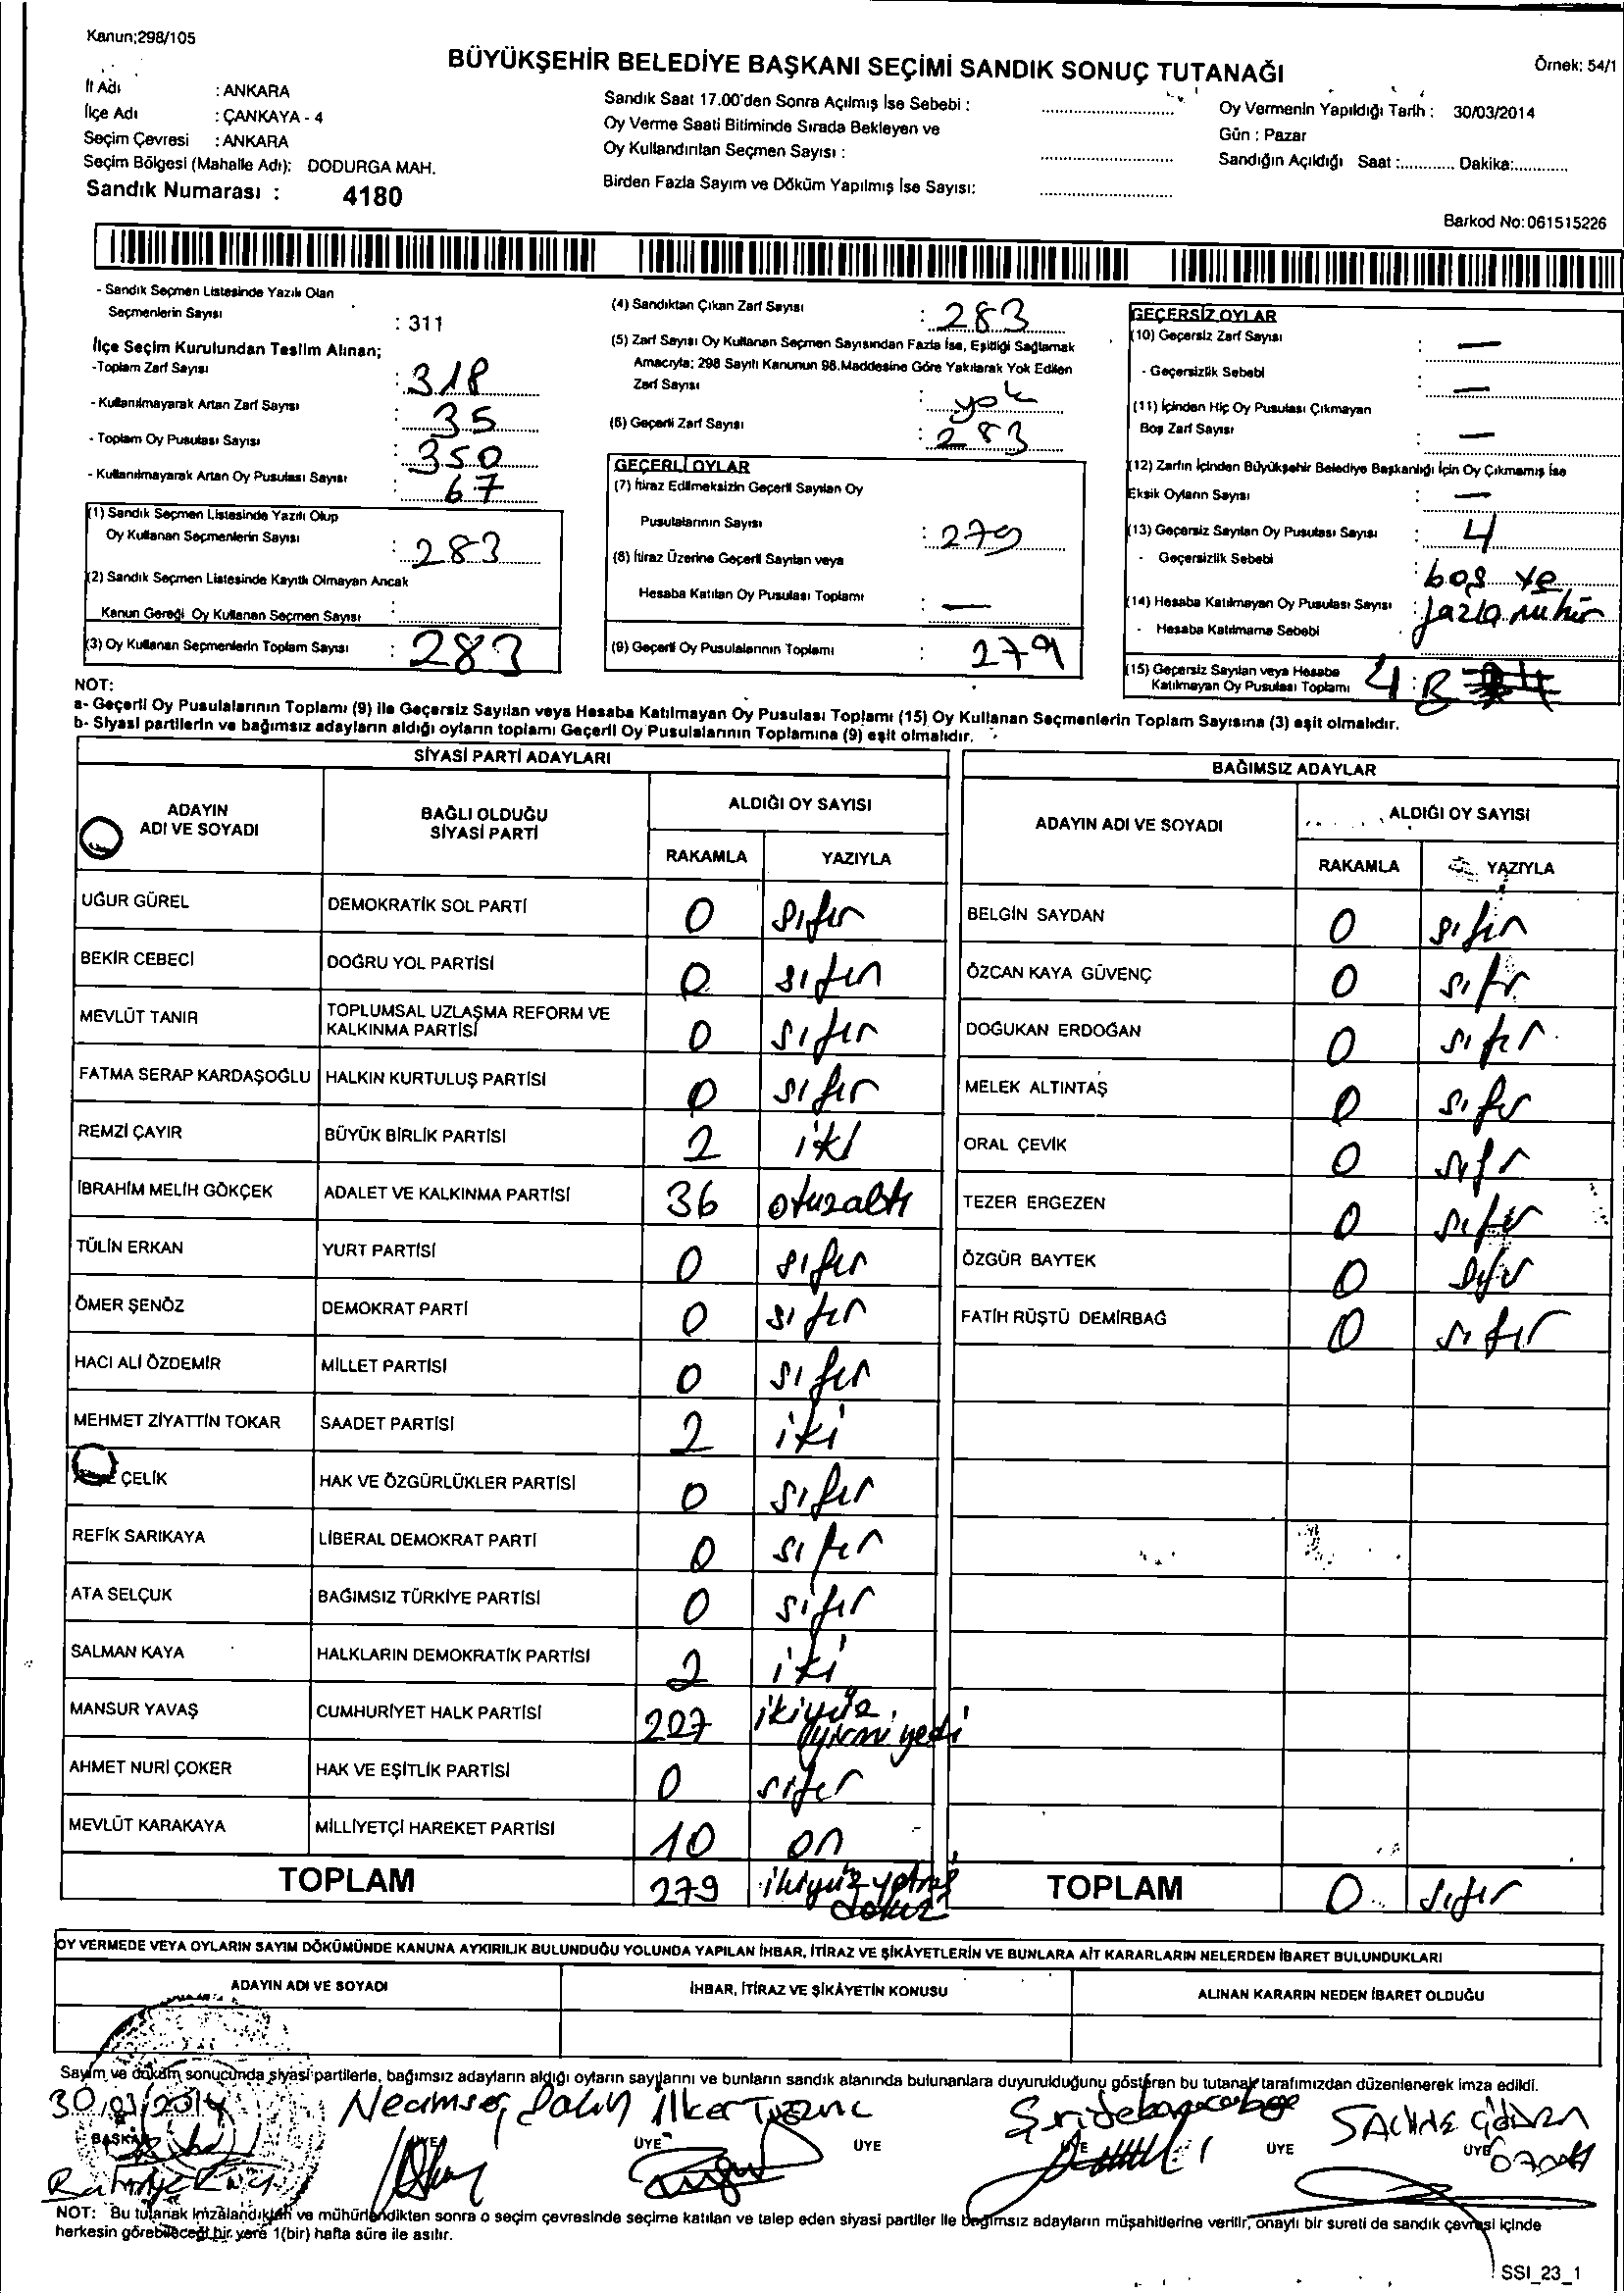 Kanun;298/105
BÜYÜKŞEHİR BELEDİYE BAŞKANI SEÇİMİ SANDIK SONUÇ TUTANAĞI
Örnek: 54/1
İl Adı : ANKARA
İlçe Adı : ÇANKAYA - 4
Seçim Çevresi : ANKARA
Seçim Bölgesi (Mahalle Adı): DODURGA MAH.
Sandık Numarası : 4180
Sandık Saat 17.00'den Sonra Açılmış İse Sebebi :
Oy Verme Saati Bitiminde Sırada Bekleyen ve
Oy Kullandırılan Seçmen Sayısı :
Birden Fazla Sayım ve Döküm Yapılmış İse Sayısı:
Oy Vermenin Yapıldığı Tarih : 30/03/2014
Gün : Pazar
Sandığın Açıldığı Saat :............ Dakika:............
Barkod No: 061515226
- Sandık Seçmen Listesinde Yazılı Olan
Seçmenlerin Sayısı : 311
İlçe Seçim Kurulundan Teslim Alınan;
-Toplam Zarf Sayısı : 318
- Kullanılmayarak Artan Zarf Sayısı : 35
- Toplam Oy Pusulası Sayısı : 350
- Kullanılmayarak Artan Oy Pusulası Sayısı : 67
(1) Sandık Seçmen Listesinde Yazılı Olup
Oy Kullanan Seçmenlerin Sayısı : 283
(2) Sandık Seçmen Listesinde Kayıtlı Olmayan Ancak
Kanun Gereği Oy Kullanan Seçmen Sayısı :
(3) Oy Kullanan Seçmenlerin Toplam Sayısı : 283
(4) Sandıktan Çıkan Zarf Sayısı : 283
(5) Zarf Sayısı Oy Kullanan Seçmen Sayısından Fazla İse, Eşitliği Sağlamak
Amacıyla; 298 Sayılı Kanunun 98.Maddesine Göre Yakılarak Yok Edilen
Zarf Sayısı : yok
(6) Geçerli Zarf Sayısı : 283
GEÇERLİ OYLAR
(7) İtiraz Edilmeksizin Geçerli Sayılan Oy
Pusulalarının Sayısı : 279
(8) İtiraz Üzerine Geçerli Sayılan veya
Hesaba Katılan Oy Pusulası Toplamı : —
(9) Geçerli Oy Pusulalarının Toplamı : 279
GEÇERSİZ OYLAR
(10) Geçersiz Zarf Sayısı : —
- Geçersizlik Sebebi : —
(11) İçinden Hiç Oy Pusulası Çıkmayan
Boş Zarf Sayısı : —
(12) Zarfın İçinden Büyükşehir Belediye Başkanlığı İçin Oy Çıkmamış İse
Eksik Oyların Sayısı : —
(13) Geçersiz Sayılan Oy Pusulası Sayısı : 4
- Geçersizlik Sebebi : boş ve
(14) Hesaba Katılmayan Oy Pusulası Sayısı : fazla mühür
- Hesaba Katılmama Sebebi
(15) Geçersiz Sayılan veya Hesaba
Katılmayan Oy Pusulası Toplamı 4 :
NOT:
a- Geçerli Oy Pusulalarının Toplamı (9) ile Geçersiz Sayılan veya Hesaba Katılmayan Oy Pusulası Toplamı (15) Oy Kullanan Seçmenlerin Toplam Sayısına (3) eşit olmalıdır.
b- Siyasi partilerin ve bağımsız adayların aldığı oyların toplamı Geçerli Oy Pusulalarının Toplamına (9) eşit olmalıdır.
SİYASİ PARTİ ADAYLARI
ADAYIN ADI VE SOYADI BAĞLI OLDUĞU SİYASİ PARTİ ALDIĞI OY SAYISI
RAKAMLA YAZIYLA
UĞUR GÜREL DEMOKRATİK SOL PARTİ 0 sıfır
BEKİR CEBECİ DOĞRU YOL PARTİSİ 0 sıfır
MEVLÜT TANIR TOPLUMSAL UZLAŞMA REFORM VE KALKINMA PARTİSİ 0 sıfır
FATMA SERAP KARDAŞOĞLU HALKIN KURTULUŞ PARTİSİ 0 sıfır
REMZİ ÇAYIR BÜYÜK BİRLİK PARTİSİ 2 iki
İBRAHİM MELİH GÖKÇEK ADALET VE KALKINMA PARTİSİ 36 otuzaltı
TÜLİN ERKAN YURT PARTİSİ 0 sıfır
ÖMER ŞENÖZ DEMOKRAT PARTİ 0 sıfır
HACI ALİ ÖZDEMİR MİLLET PARTİSİ 0 sıfır
MEHMET ZİYATTİN TOKAR SAADET PARTİSİ 2 iki
ÇELİK HAK VE ÖZGÜRLÜKLER PARTİSİ 0 sıfır
REFİK SARIKAYA LİBERAL DEMOKRAT PARTİ 0 sıfır
ATA SELÇUK BAĞIMSIZ TÜRKİYE PARTİSİ 0 sıfır
SALMAN KAYA HALKLARIN DEMOKRATİK PARTİSİ 2 iki
MANSUR YAVAŞ CUMHURİYET HALK PARTİSİ 227 ikiyüz yirmi yedi
AHMET NURİ ÇOKER HAK VE EŞİTLİK PARTİSİ 0 sıfır
MEVLÜT KARAKAYA MİLLİYETÇİ HAREKET PARTİSİ 10 on
TOPLAM 279 ikiyüz yetmiş dokuz
BAĞIMSIZ ADAYLAR
ADAYIN ADI VE SOYADI ALDIĞI OY SAYISI
RAKAMLA YAZIYLA
BELGİN SAYDAN 0 sıfır
ÖZCAN KAYA GÜVENÇ 0 sıfır
DOĞUKAN ERDOĞAN 0 sıfır
MELEK ALTINTAŞ 0 sıfır
ORAL ÇEVİK 0 sıfır
TEZER ERGEZEN 0 sıfır
ÖZGÜR BAYTEK 0 sıfır
FATİH RÜŞTÜ DEMİRBAĞ 0 sıfır
TOPLAM 0 sıfır
OY VERMEDE VEYA OYLARIN SAYIM DÖKÜMÜNDE KANUNA AYKIRILIK BULUNDUĞU YOLUNDA YAPILAN İHBAR, İTİRAZ VE ŞİKÂYETLERİN VE BUNLARA AİT KARARLARIN NELERDEN İBARET BULUNDUKLARI
ADAYIN ADI VE SOYADI İHBAR, İTİRAZ VE ŞİKÂYETİN KONUSU ALINAN KARARIN NEDEN İBARET OLDUĞU
Sayım ve döküm sonucunda siyasi partilerle, bağımsız adayların aldığı oyların sayılarını ve bunların sandık alanında bulunanlara duyurulduğunu gösteren bu tutanak tarafımızdan düzenlenerek imza edildi.
30/03/2014 İlker
BAŞKAN ÜYE ÜYE ÜYE ÜYE
NOT: Bu tutanak imzalandıktan ve mühürlendikten sonra o seçim çevresinde seçime katılan ve talep eden siyasi partiler ile bağımsız adayların müşahitlerine verilir, onaylı bir sureti de sandık çevresi içinde
herkesin görebileceği bir yere 1(bir) hafta süre ile asılır.
SSI_23_1